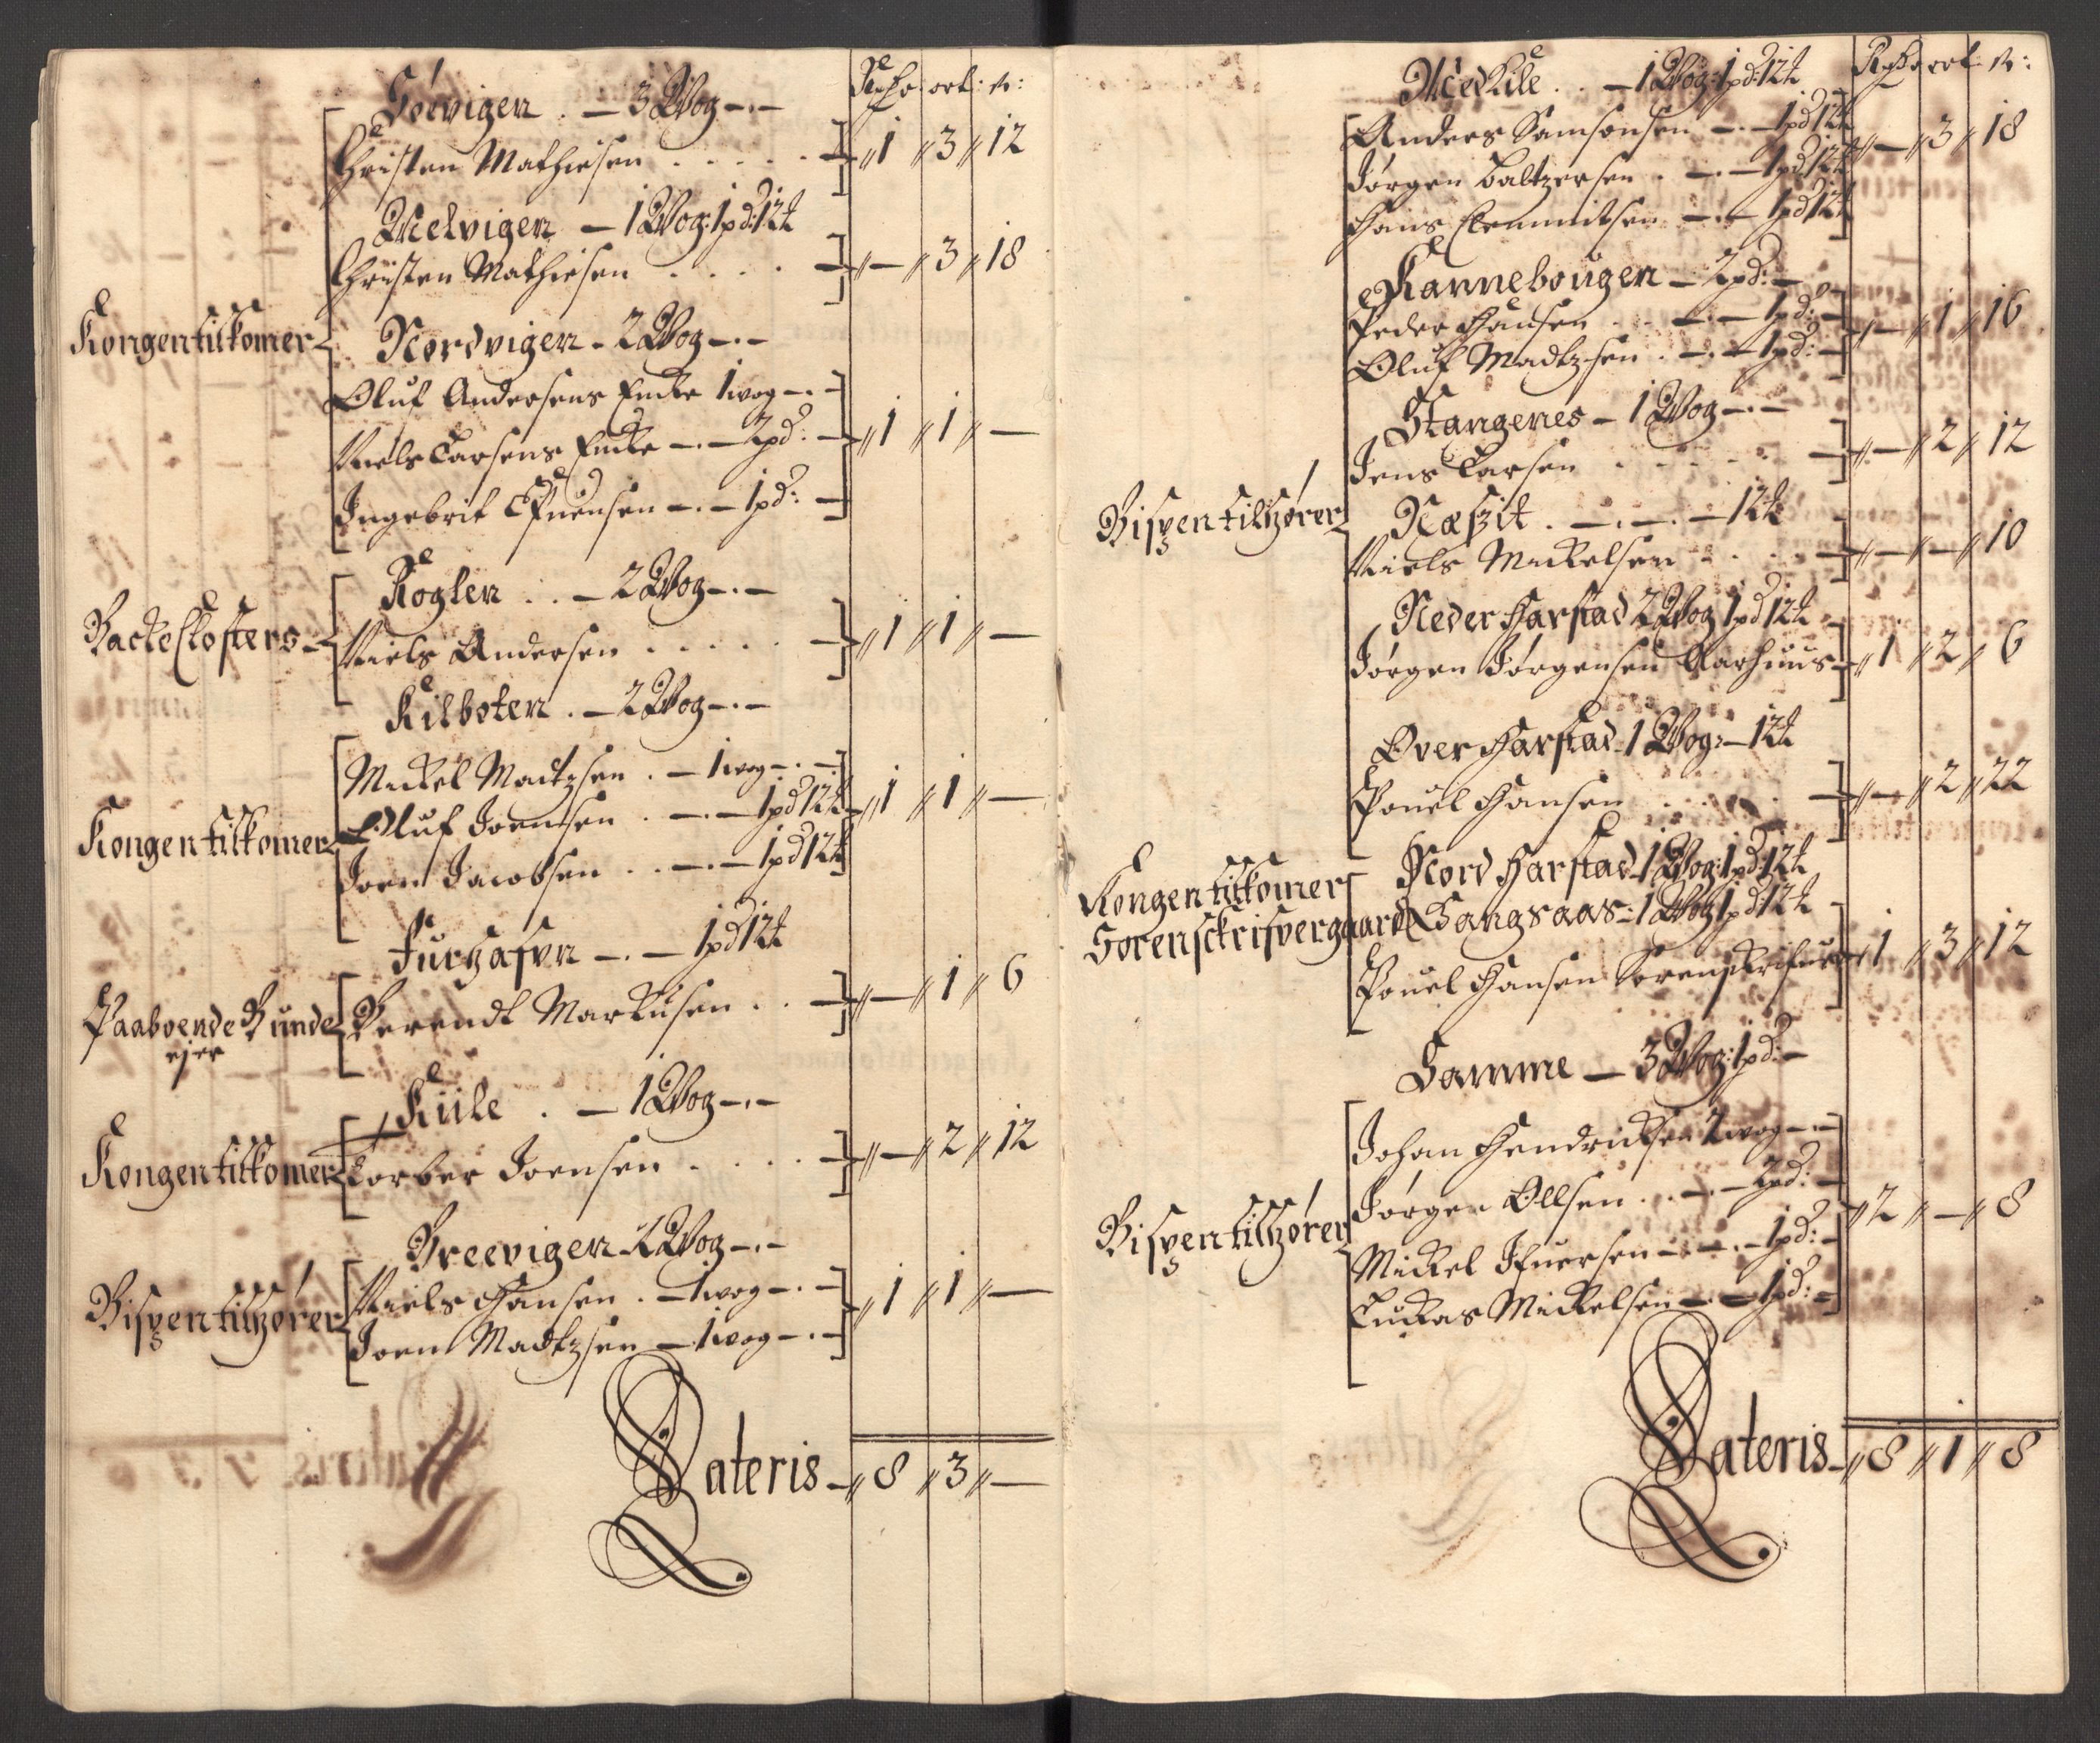 Rdr: ort: sk:
Söevigen . — 3 Wog —.—
Christen Mathiesen . . . . . — 〃 1 〃 3 〃 12
Melvigen — 1 Wog: 1 pd: 12 ℔
Christen Mathiesen . . . . — 〃 — 〃 3 〃 18
Kongen tilkomer
Nordvigen - 2 Wog —.—
Oluf Andersens Encke 1 wog —.—
Niels Larsens Encke —.— 2 pd: — 〃 1 〃 1 〃 —
Ingebrit Efuensen —.— 1 pd: —
Roglen . . — 2 Wog —.—
Backe Closters
Niels Andersen . . . . . — 〃 1 〃 1 〃 —
Kilboten . — 2 Wog —.—
Mickel Madtzsen . — 1 wog —.—
Oluf Joensen . —.— 1 pd 12 ℔ 〃 1 〃 1 〃 —
Kongen tilkomer
Joen Jacobsen . . —.— 1 pd 12 ℔
—.— 1 pd 12 ℔
Paaboende Bunde ejer
Berendt Markusen . . — 〃 — 〃 1 〃 6
Kiile . — 1 Wog —.—
Kongen tilkomer
Torber Joensen . . . . — 〃 — 〃 2 〃 12
Breevigen 2 Wog —.—
Bispen tilhører
Niels Hansen . — 1 wog —.— 〃 1 〃 1 〃 —
Joen Madtzsen — 1 wog —.—
Lateris — 〃 8 〃 3 〃 —
Rdr ort: sk:
Medkile . . — 1 Wog: 1 pd: 12 ℔
Anders Samsonsen —.— 1 pd 12 ℔ 〃 — 〃 3 〃 18
Jørgen Baltzersen . —.— 1 pd 12 ℔
Hans Clemmitsen —.— 1 pd 12 ℔
Kannebougen — 2 pd: —
Peder Hansen . . —.— 1 pd: — 〃 — 〃 1 〃 16
Oluf Madtzsen . —.— 1 pd: —
Stangenes — 1 Wog —.—
Jens Larsen . . . . . — 〃 — 〃 2 〃 12
Bispen tilhører
Næszit . —.—.— 12 ℔
Niels Mickelsen . . . . — 〃 — 〃 — 〃 10
Neder Harstad 2 Wog 1 pd 12 ℔
Jørgen Jørgensen Aarhuus — 〃 1 〃 2 〃 6
Over Harstad - 1 Wog: — 12 ℔
Pouel Hansen . . . . . — 〃 — 〃 2 〃 22
Kongen tilkomer
Nord Harstad 1 Wog: 1 pd: 12 ℔
Sorenschrifvergaard
Gangsaas - 1 Wog 1 pd: 12 ℔
Pouel Hansen Sorenskrifuer 〃 1 〃 3 〃 12
Samme — 3 Wog: 1 pd: —
Johan Hendricksen 2 wog —.—
Jørgen Ollsen . . —.— 2 pd: —
Bispen tilhører
〃 2 〃 — 〃 8
Mickel Ifuersen —.— 1 pd: —
Luckas Mickelsen —.— 1 pd: —
Lateris — 〃 8 〃 1 〃 8